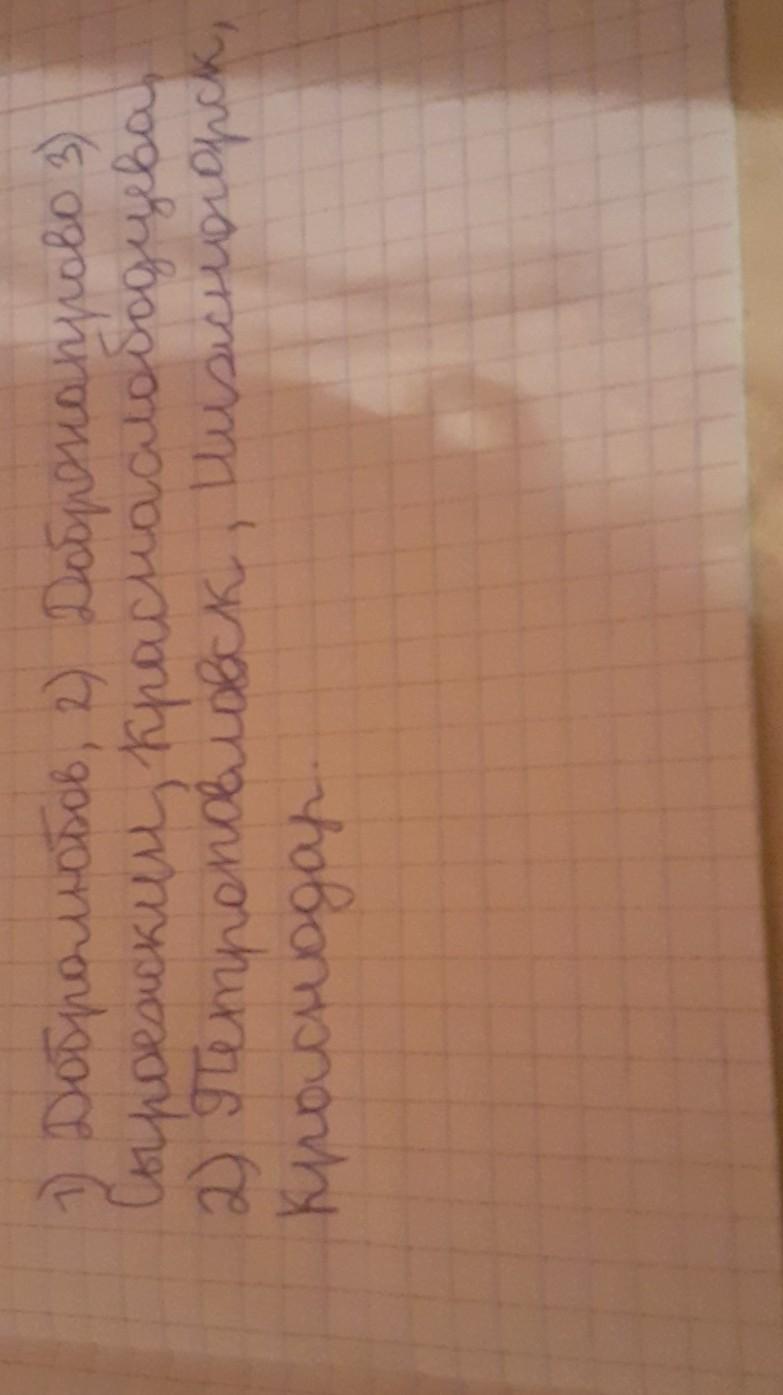 1) Добролюбов, 2) Добронаправо 3)
Сыроежкин, Краснаслободцева,
2) Петропавловск, Ижсногорск,
Краснодар.